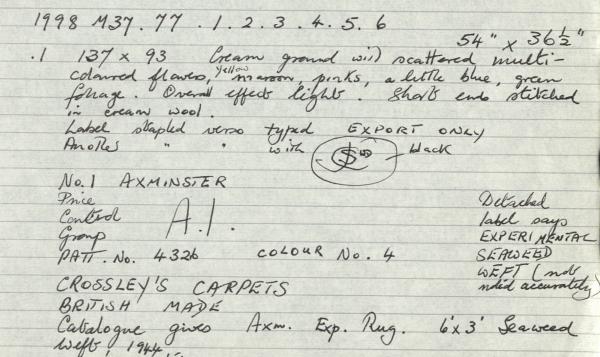 1998 M37.77 .1.2.3.4.5.6
54" x 36½"
.1 137 x 93 Cream ground with scattered multi-
coloured flowers, yellow maroon, pinks, a little blue, green
foliage. Overall effect light. Short ends stitched
in cream wool.
Label stapled verso typed EXPORT ONLY
Another " " with $ black
No.1 AXMINSTER
Price
Control A.1.
Group
PATT. No. 4326 COLOUR No. 4
Detached
label says
EXPERIMENTAL
SEAWEED
WEFT (not
noted accurately)
CROSSLEY'S CARPETS
BRITISH MADE
Catalogue gives Axm. Exp. Rug. 6'x3' Seaweed
weft, 1944,